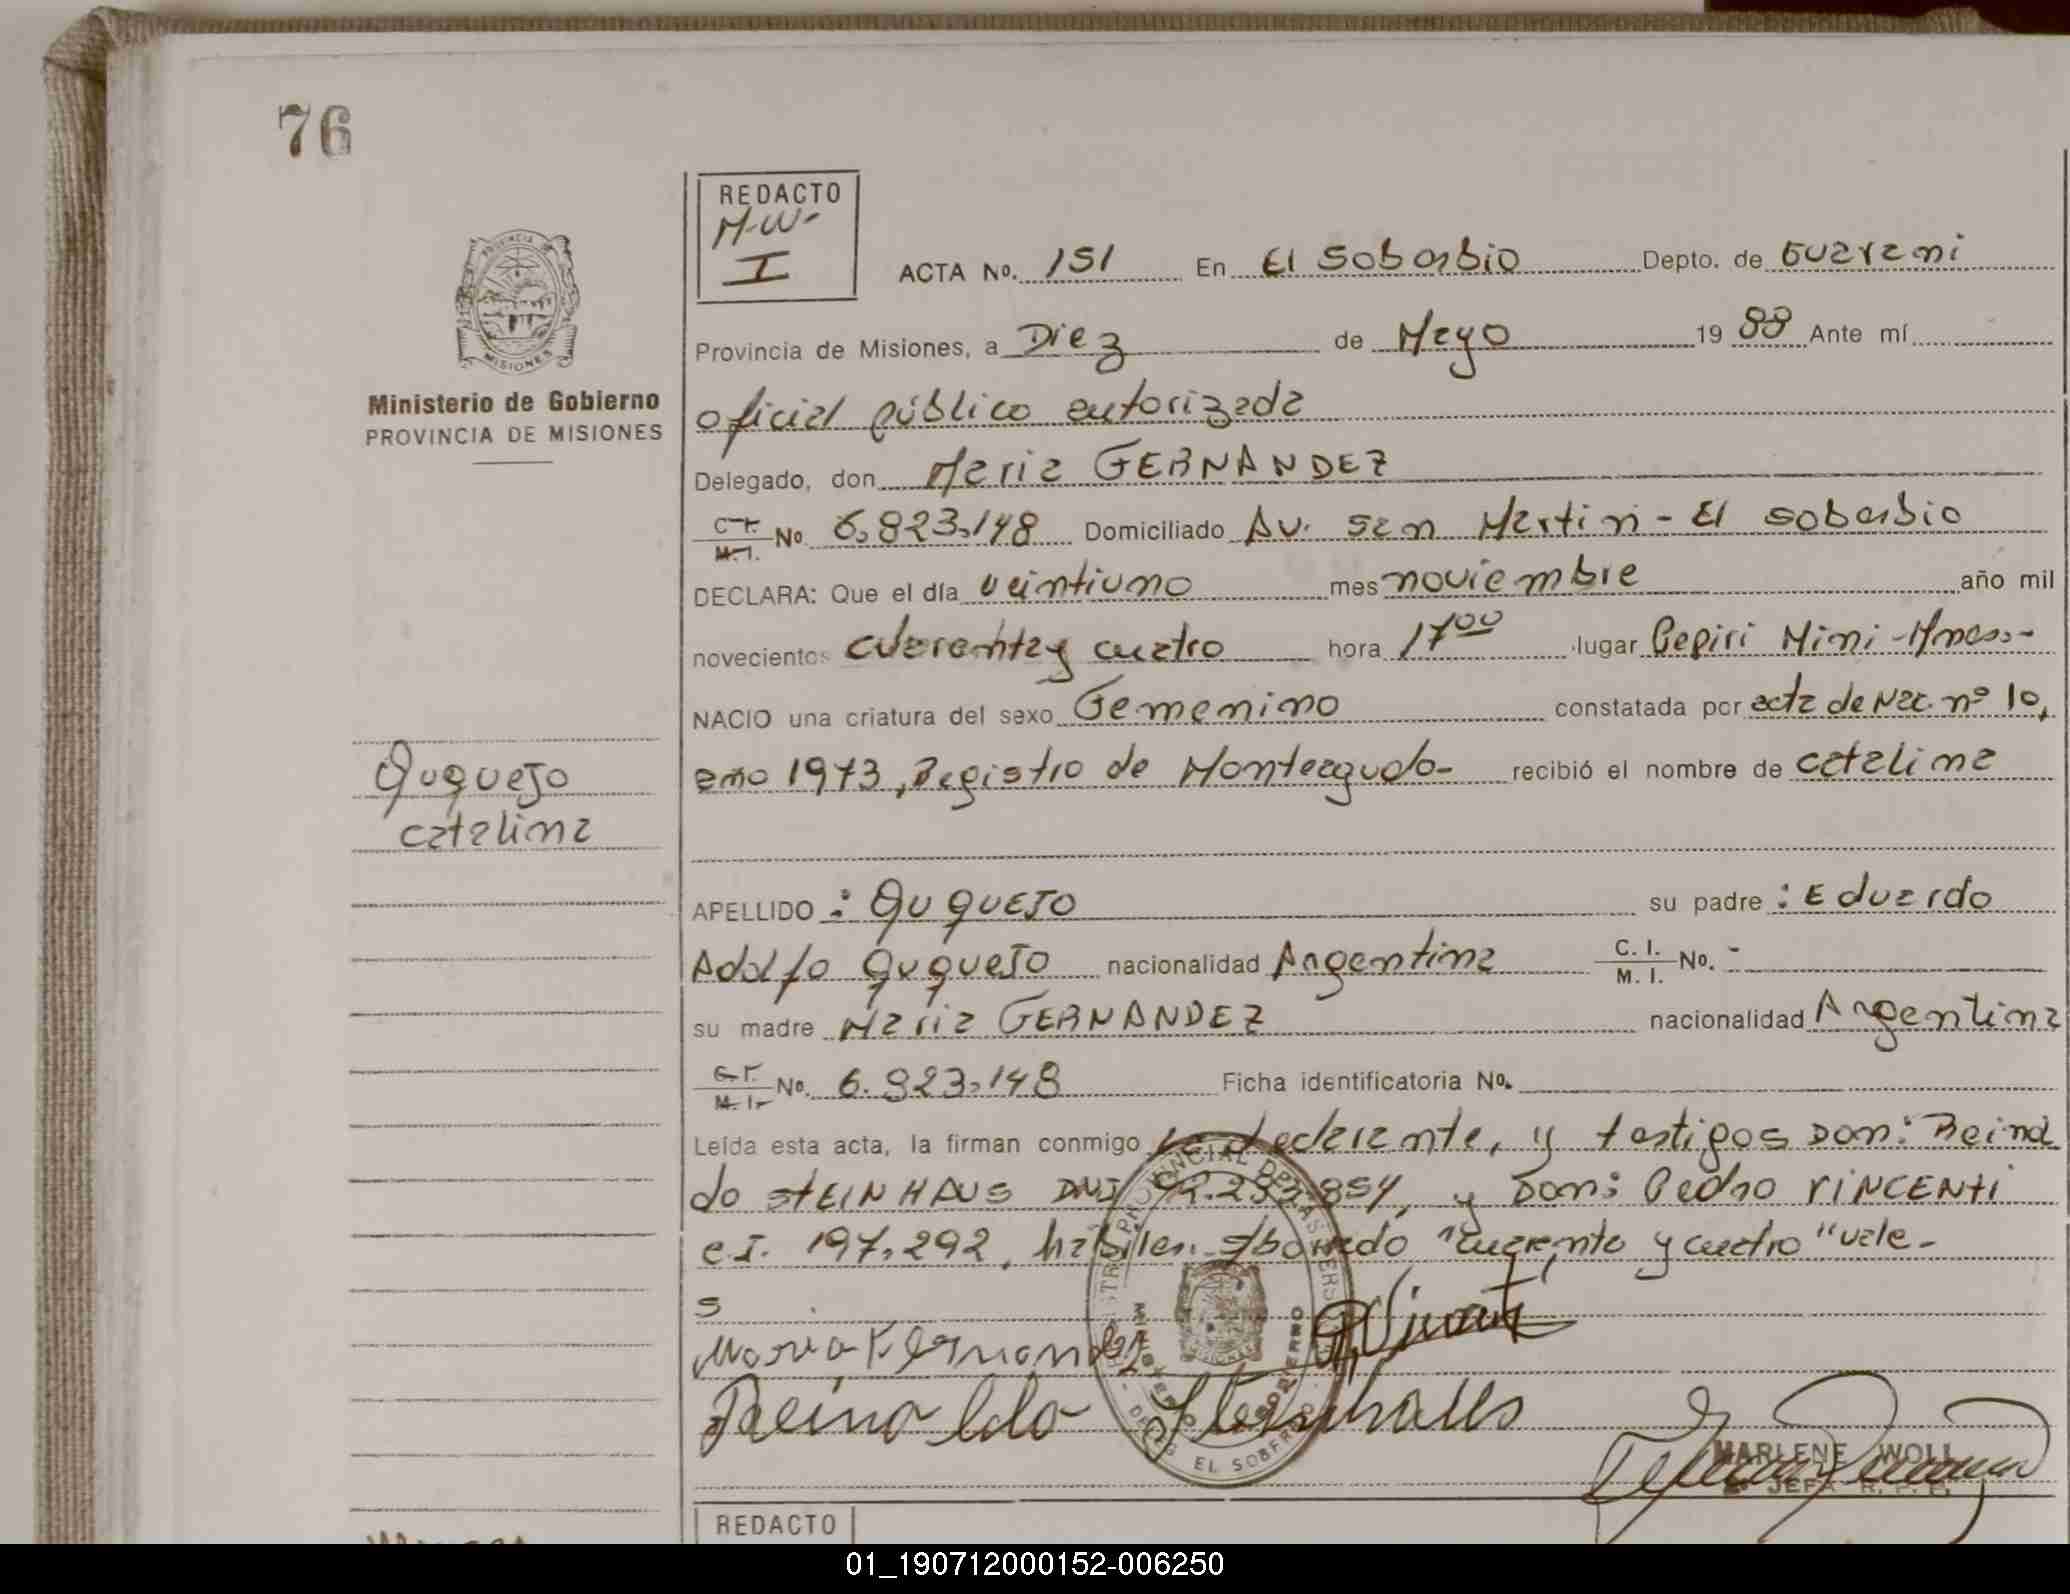 76
REDACTO
M-W-
I
ACTA No. 151 En El Soberbio Depto. de Guarani
Provincia de Misiones, a Diez de Mayo 19 88 Ante mí
PROVINCIA DE
MISIONES
Ministerio de Gobierno
PROVINCIA DE MISIONES
oficial público autorizada
Delegado, don Maria FERNANDEZ
C.I. M.I. No. 6.823.148 Domiciliado Av. San Martin - El Soberbio
DECLARA: Que el día veintiuno mes noviembre año mil
novecientos cuarenta y cuatro hora 17 00 lugar Pepiri Mini - Mnes.-
NACIO una criatura del sexo Femenino constatada por acta de Nac. nº 10,
año 1973, Registro de Monteagudo- recibió el nombre de Catalina
Ququejo
Catalina
APELLIDO : QUQUEJO su padre : Eduardo
Adolfo QUQUEJO nacionalidad Argentina C. I. M. I. No. -
su madre Maria FERNANDEZ nacionalidad Argentina
C.I. M.I. No. 6.823.148 Ficha identificatoria No.
Leída esta acta, la firman conmigo la declarante, y testigos Don: Reinal
do STEINHAUS DNI y Don: Pedro VINCENTI
C.I. 197.292, hábiles. "cuarenta y cuatro" vale-
s
Maria Fernandez
Reinaldo Steinhaus
MINISTERIO DE GOBIERNO
EL SOBERBIO
MARLENE WOLL
JEFA R. P. P.
REDACTO
01_190712000152-006250